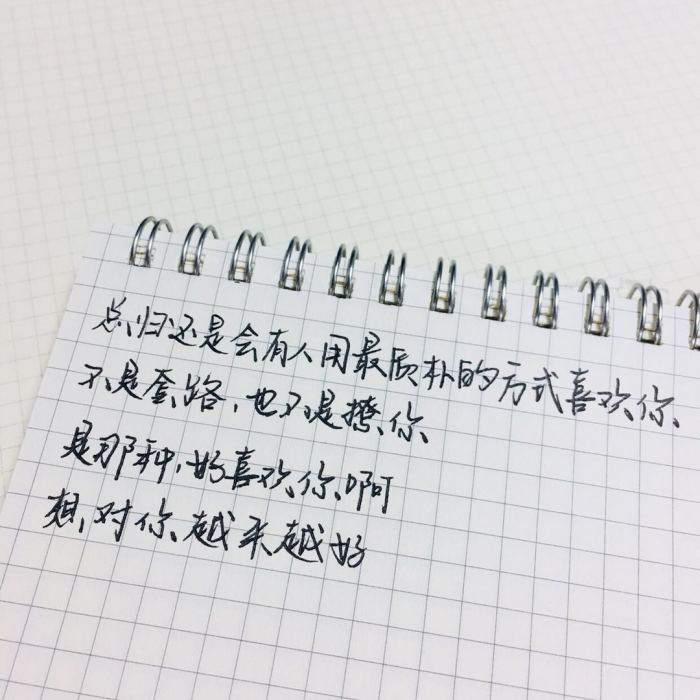 总归还是会有人用最质朴的方式喜欢你
不是套路，也不是撩你
是那种，好喜欢你啊
想对你越来越好